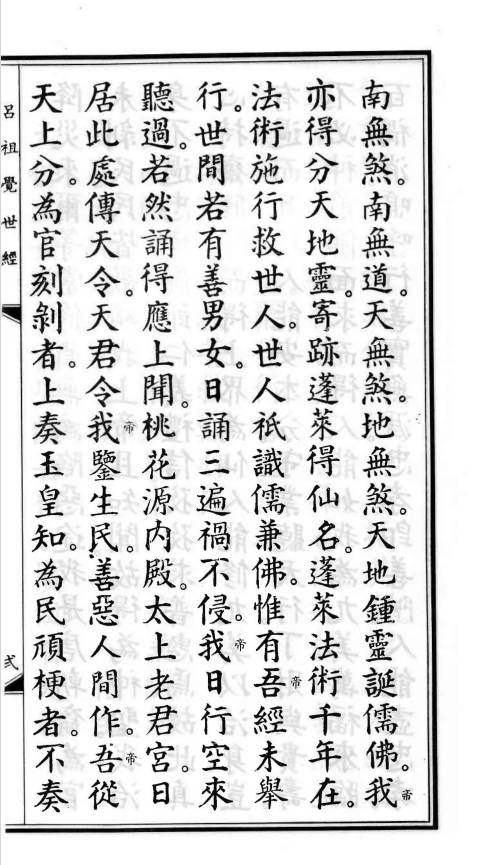 南無煞。南無道。天無煞。地無煞。天地鍾靈誕儒佛。我帝
亦得分天地靈。寄跡蓬萊得仙名。蓬萊法術千年在。
法術施行救世人。世人祇識儒兼佛。惟有吾帝經未舉
行。世間若有善男女。日誦三遍禍不侵。我帝日行空來
聽過。若然誦得應上聞。桃花源內殿。太上老君宮。日
居此處傳天令。天君令我帝鑒生民。善惡人間作。吾帝從
天上分。為官刻剝者。上奏玉皇知。為民頑梗者。不奏
呂祖覺世經
弍